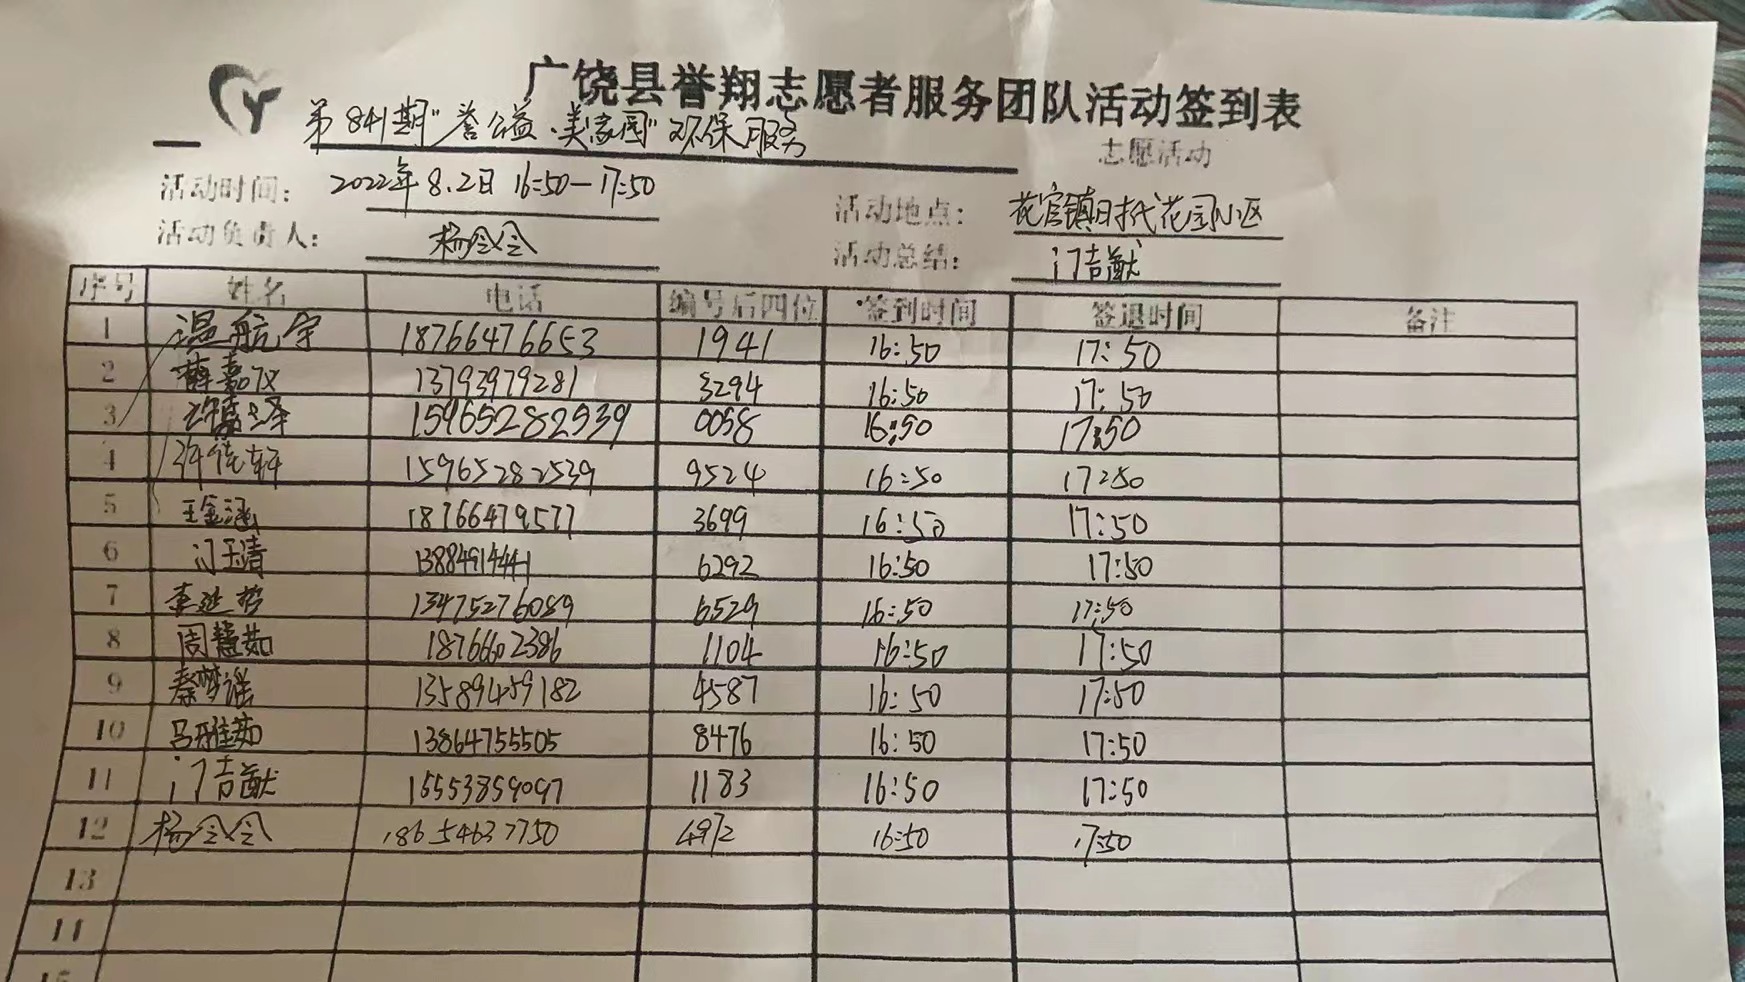 广饶县誉翔志愿者服务团队活动签到表
第841期"誉公益·美家园"环保服务 志愿活动
活动时间: 2022年8.2日 16:50—17:50 活动地点: 花官镇时代花园小区
活动负责人: 杨令令 活动总结: 门吉猷
序号 姓名 电话 编号后四位 签到时间 签退时间 备注
1 温航宇 18766476653 1941 16:50 17:50
2 薛嘉仪 13793979281 3294 16:50 17:50
3 许嘉泽 15965282539 0058 16:50 17:50
4 许倍轩 15965282539 9524 16:50 17:50
5 王金涵 18766479577 3699 16:50 17:50
6 门玉清 13884914441 6292 16:50 17:50
7 李 13475276089 6529 16:50 17:50
8 周慧茹 1876602386 1104 16:50 17:50
9 秦梦谣 13589459182 4587 16:50 17:50
10 吕雅茹 13864755505 8476 16:50 17:50
11 门吉猷 15553859097 1183 16:50 17:50
12 杨令令 18654637750 4972 16:50 17:50
13
14
15